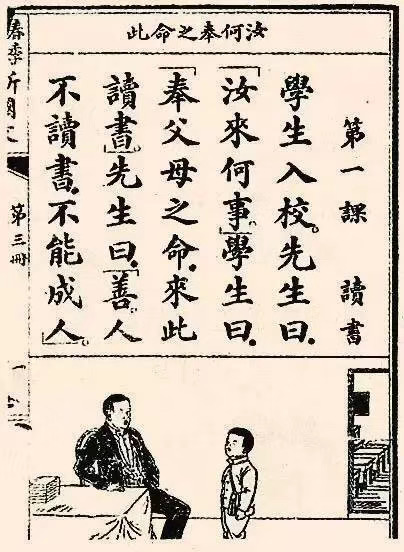 汝何奉之命此
第一課 讀書
學生入校。先生曰。
「汝來何事」學生曰。
「奉父母之命。來此
讀書」先生曰。「善。人
不讀書。不能成人」
第三冊
一